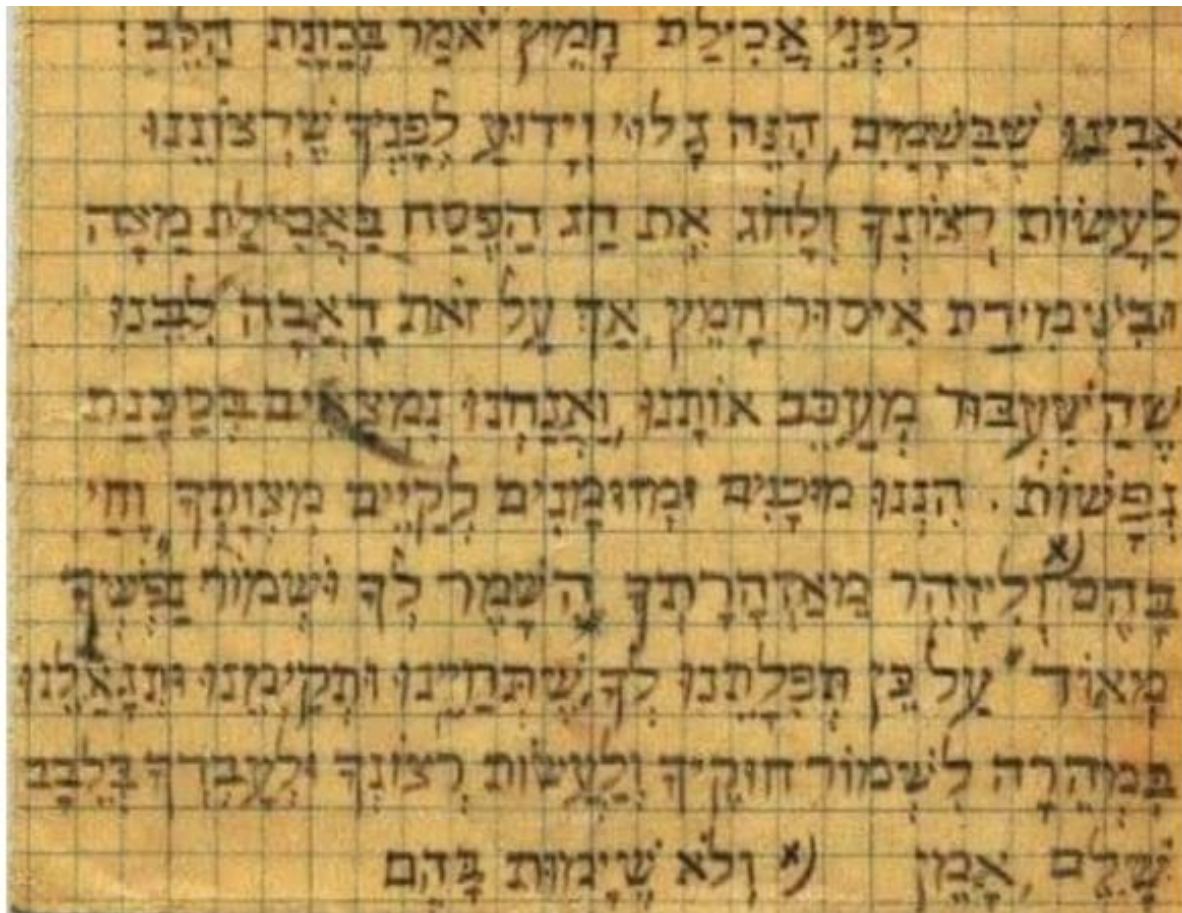 לִפְנֵי אֲכִילַת חָמֵץ יֹאמַר בְּכַוָּנַת הַלֵּב :
אָבִינוּ שֶׁבַּשָּׁמַיִם, הִנֵּה גָלוּי וְיָדוּעַ לְפָנֶיךָ שֶׁרְצוֹנֵנוּ
לַעֲשׂוֹת רְצוֹנְךָ וְלָחוֹג אֶת חַג הַפֶּסַח בַּאֲכִילַת מַצָּה
וּבִשְׁמִירַת אִיסוּר חָמֵץ, אַךְ עַל זֹאת דָאֲבָה לִבֵּנוּ
שֶׁהַשִׁעְבּוּד מְעַכֵּב אוֹתָנוּ, וַאֲנַחְנוּ נִמְצָאִים בְּסַכָּנַת
נְפָשׁוֹת. הִנְנוּ מוּכָנִים וּמְזוּמָנִים לְקַיֵּים מִצְוֹתֶךָ „וָחַי
בָּהֶם” א) וְלִיזָהֵר מֵאַזְהָרָתְךָ „הִשָּׁמֶר לְךָ וּשְׁמוֹר נַפְשְׁךָ
מְאוֹד” עַל כֵּן תְּפִלָּתֵנוּ לְךָ, שֶׁתְּחַיֵּינוּ וּתְקַיְמֵנוּ וְתִגְאָלֵנוּ
בִּמְהֵרָה לִשְׁמוֹר חוּקֶיךָ וְלַעֲשׂוֹת רְצוֹנְךָ וּלְעָבְדְךָ בְּלֵבָב
שָׁלֵם, אָמֵן א) וְלֹא שֶׁיָמוּת בָּהֶם